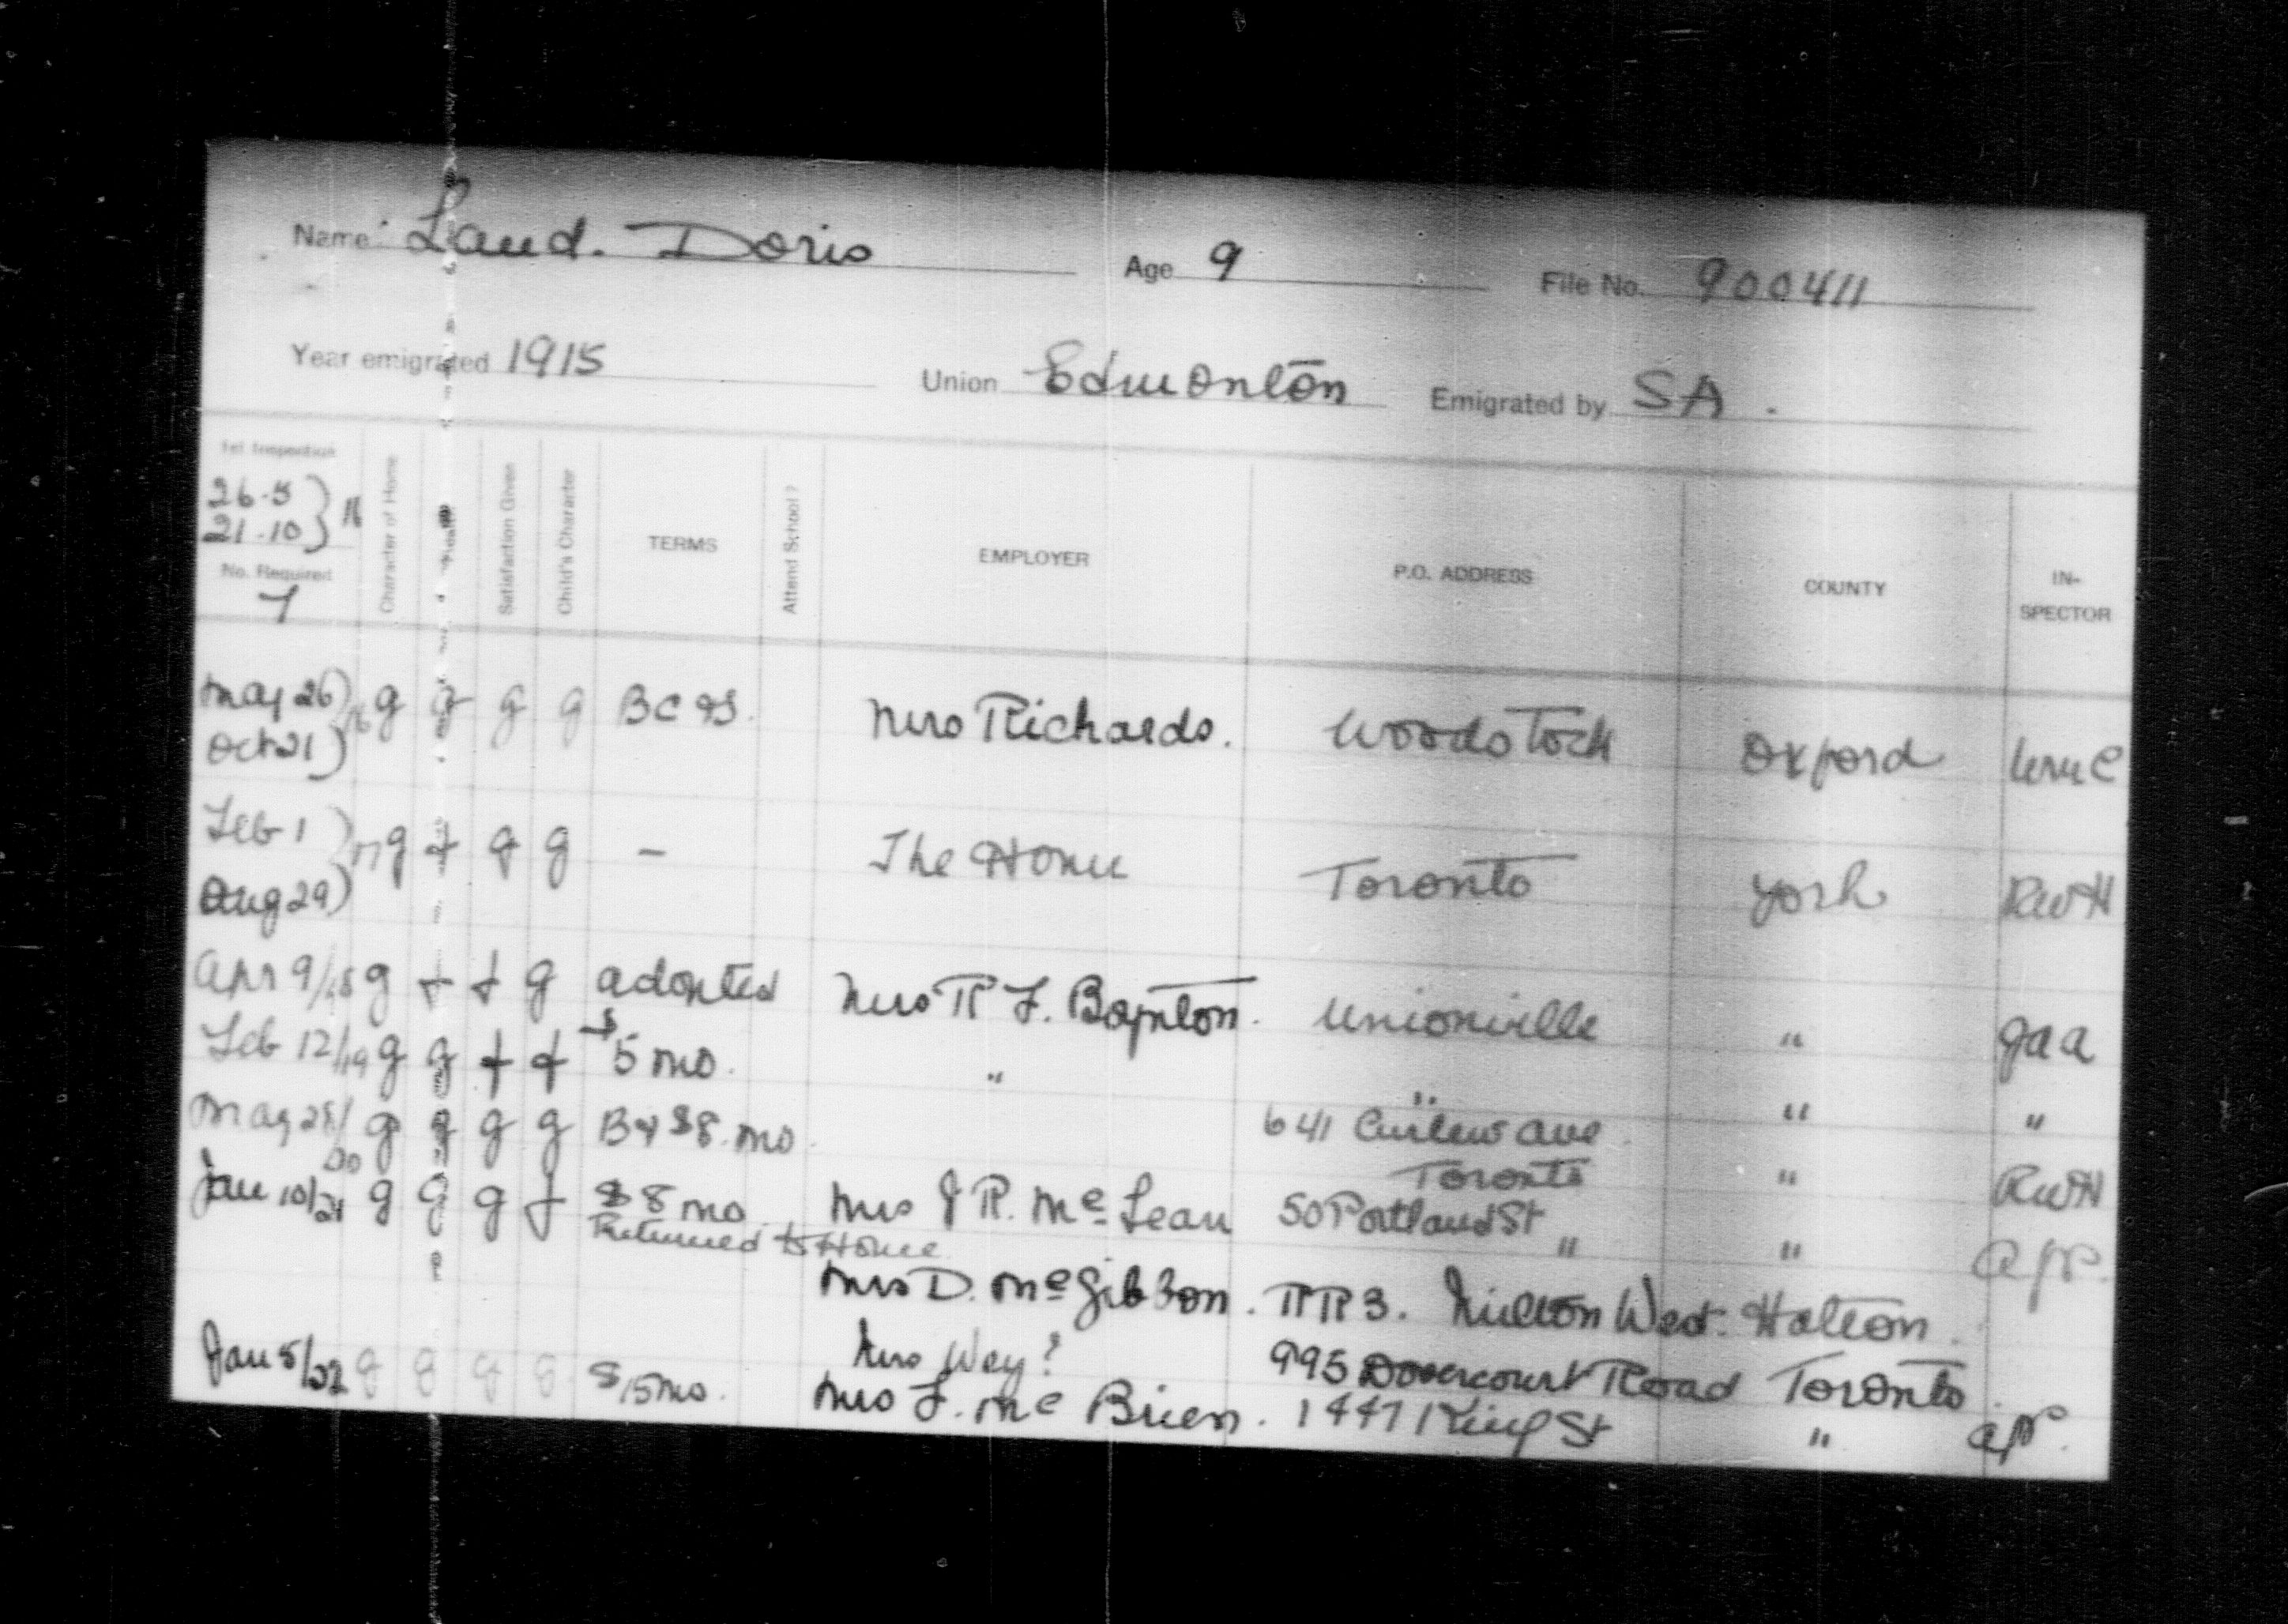 Name Land. Doris Age 9 File No. 900411
Year emigrated 1915 Union Edmonton Emigrated by SA.
1st Inspection
26.5
21.10) 16
No. Required
7
Character of Home
Health
Satisfaction Given
Child's Character
TERMS
Attend School?
EMPLOYER
P.O. ADDRESS
COUNTY
IN-
SPECTOR
May 26)
Oct 21) 16 g g g g BC &S. Mrs Richards. Woodstock Oxford
Feb 1)
Aug 29) 17 g f g g - The Home Toronto York RWH
Apr 9/18 g f f g adopted Mrs R F. Boynton. Unionville " gaa
Feb 12/19 g g f f $5 mo. " " " "
May 28/20 g g g g B& $8. mo. 641 Curlew Ave
Toronto " RWH
Jan 10/21 g g g f $8 mo Mrs J R. McLean 50 Portland St " "
Returned to Home
Mrs D. McGibbon. RR3. Milton West. Halton.
Mrs Way? 995 Dovercourt Road Toronto
Jan 5/22 g g g g $15 mo. Mrs F. McBrien. 1447 King St "